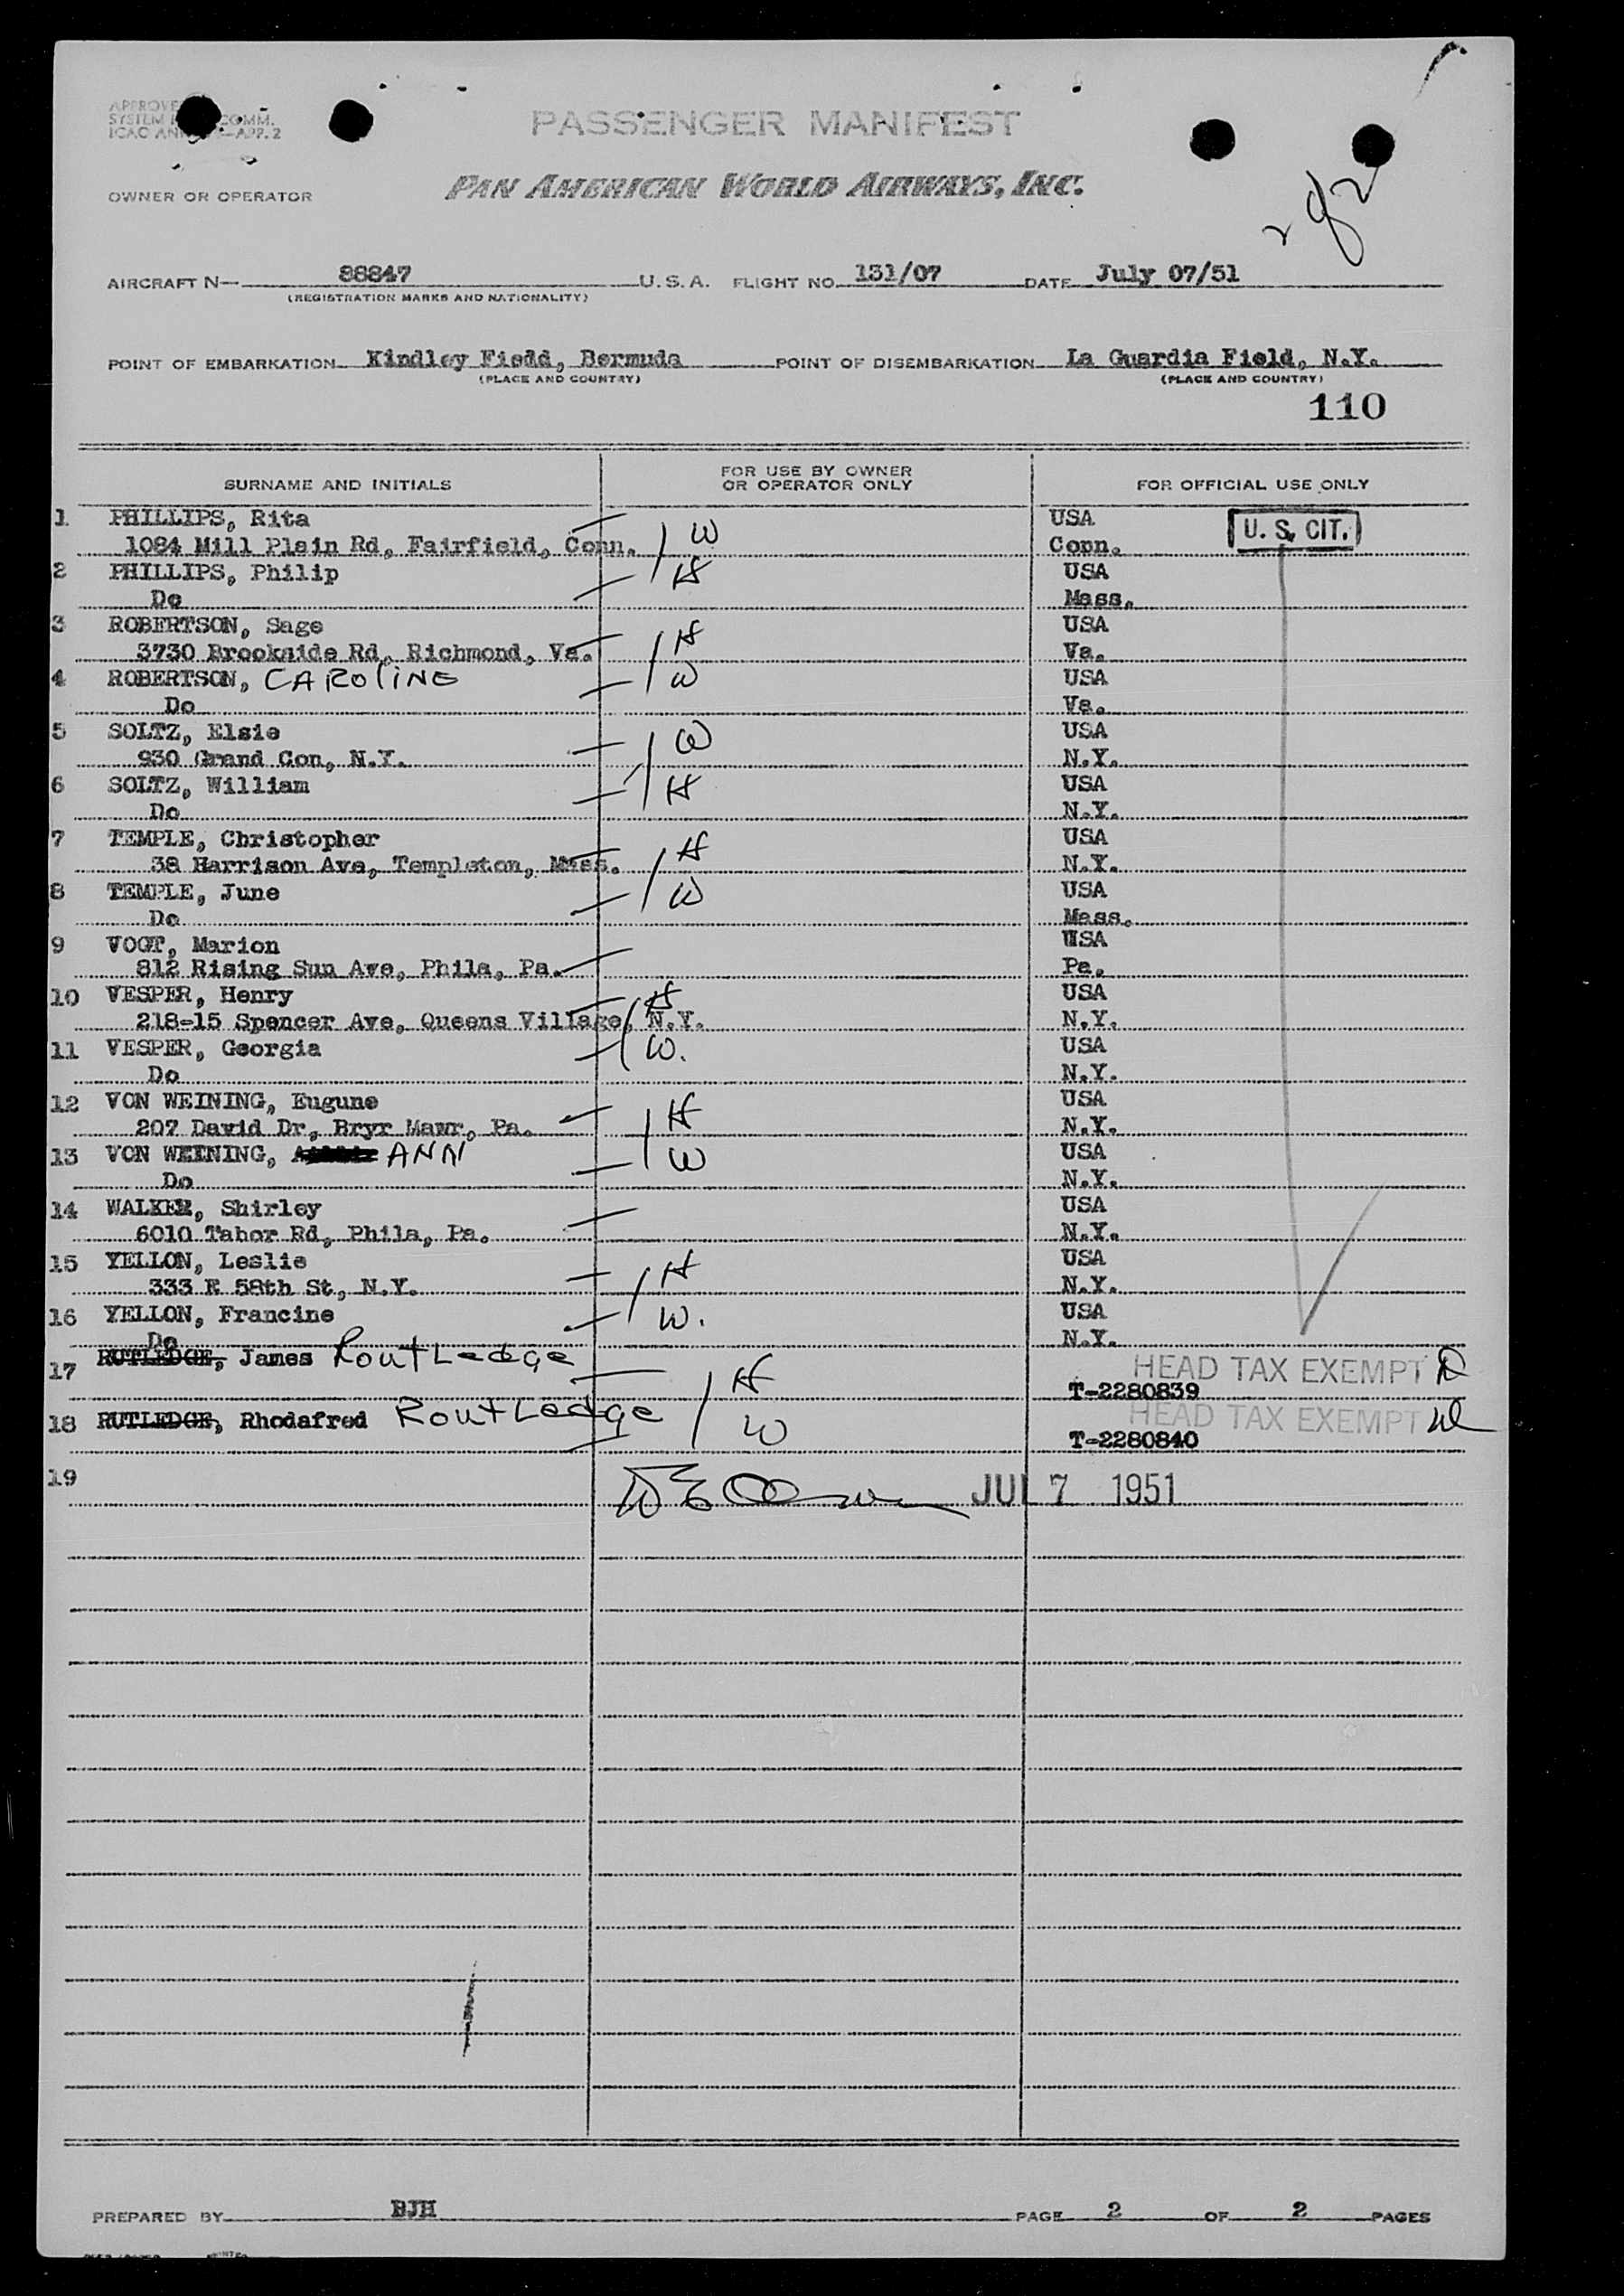 PASSENGER MANIFEST
OWNER OR OPERATOR PAN AMERICAN WORLD AIRWAYS, INC.
2 of 2
AIRCRAFT N— 88847 U.S.A. FLIGHT NO. 131/07 DATE July 07/51
(REGISTRATION MARKS AND NATIONALITY)
POINT OF EMBARKATION Kindley Fiedd, Bermuda POINT OF DISEMBARKATION La Guardia Field, N.Y.
(PLACE AND COUNTRY) (PLACE AND COUNTRY)
110
SURNAME AND INITIALS FOR USE BY OWNER OR OPERATOR ONLY FOR OFFICIAL USE ONLY
1 PHILLIPS, Rita USA U. S. CIT.
1084 Mill Plain Rd, Fairfield, Conn. W Conn.
2 PHILLIPS, Philip H USA
Do Mass.
3 ROBERTSON, Sage H USA
3730 Brookside Rd, Richmond, Va. Va.
4 ROBERTSON, CAROLINE W USA
Do Va.
5 SOLTZ, Elsie W USA
930 Grand Con, N.Y. N.Y.
6 SOLTZ, William H USA
Do N.Y.
7 TEMPLE, Christopher H USA
38 Harrison Ave, Templeton, Mass. N.Y.
8 TEMPLE, June W USA
Do Mass.
9 VOGT, Marion USA
812 Rising Sun Ave, Phila, Pa. Pa.
10 VESPER, Henry H USA
218-15 Spencer Ave, Queens Village, N.Y. N.Y.
11 VESPER, Georgia W. USA
Do N.Y.
12 VON WEINING, Eugune H USA
207 David Dr, Bryr Mawr, Pa. N.Y.
13 VON WEINING, ANN W USA
Do N.Y.
14 WALKER, Shirley USA
6010 Tabor Rd, Phila, Pa. N.Y.
15 YELLON, Leslie H USA
333 E 58th St, N.Y. N.Y.
16 YELLON, Francine W. USA
Do N.Y.
17 RUTLEDGE, James RoutLedge H HEAD TAX EXEMPT
T-2280839
18 RUTLEDGE, Rhodafred RoutLedge W HEAD TAX EXEMPT
T-2280840
19 JUL 7 1951
PREPARED BY BJH PAGE 2 OF 2 PAGES